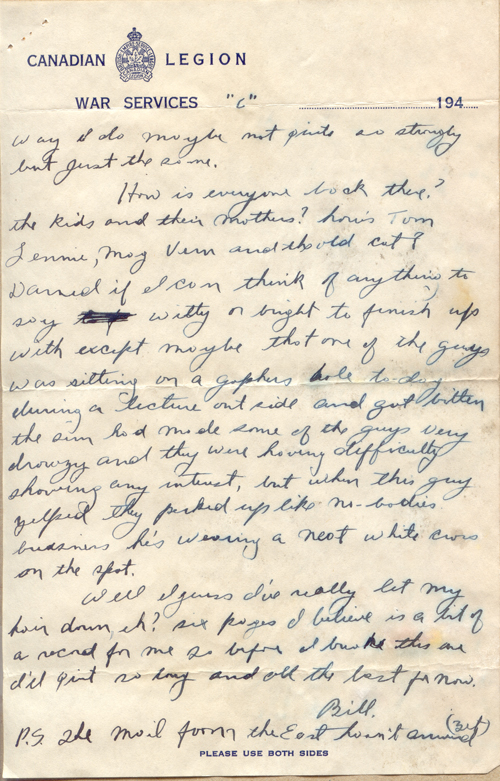 CANADIAN LEGION
WAR SERVICES "C" 194
way I do maybe not quite so strongly
but just the same.
How is everyone back there?
the kids and their mothers? how's Tom
Lennie, May Vern and the old cat?
Darned if I can think of anything to
say witty or bright to finish up
with except maybe that one of the guys
was sitting on a gophers hole to-day
during a lecture outside and got bitten
the sun had made some of the guys very
drowzy and they were having difficulty
showing any interest, but when this guy
yelped they perked up like no-bodies
business he's wearing a neat white cross
on the spot.
Well I guess I've really let my
hair down, eh? six pages I believe is a bit of
a record for me so before I break this one
I'll quit so long and all the best for now.
Bill.
P.S. The mail from the East hasn't arrived
PLEASE USE BOTH SIDES